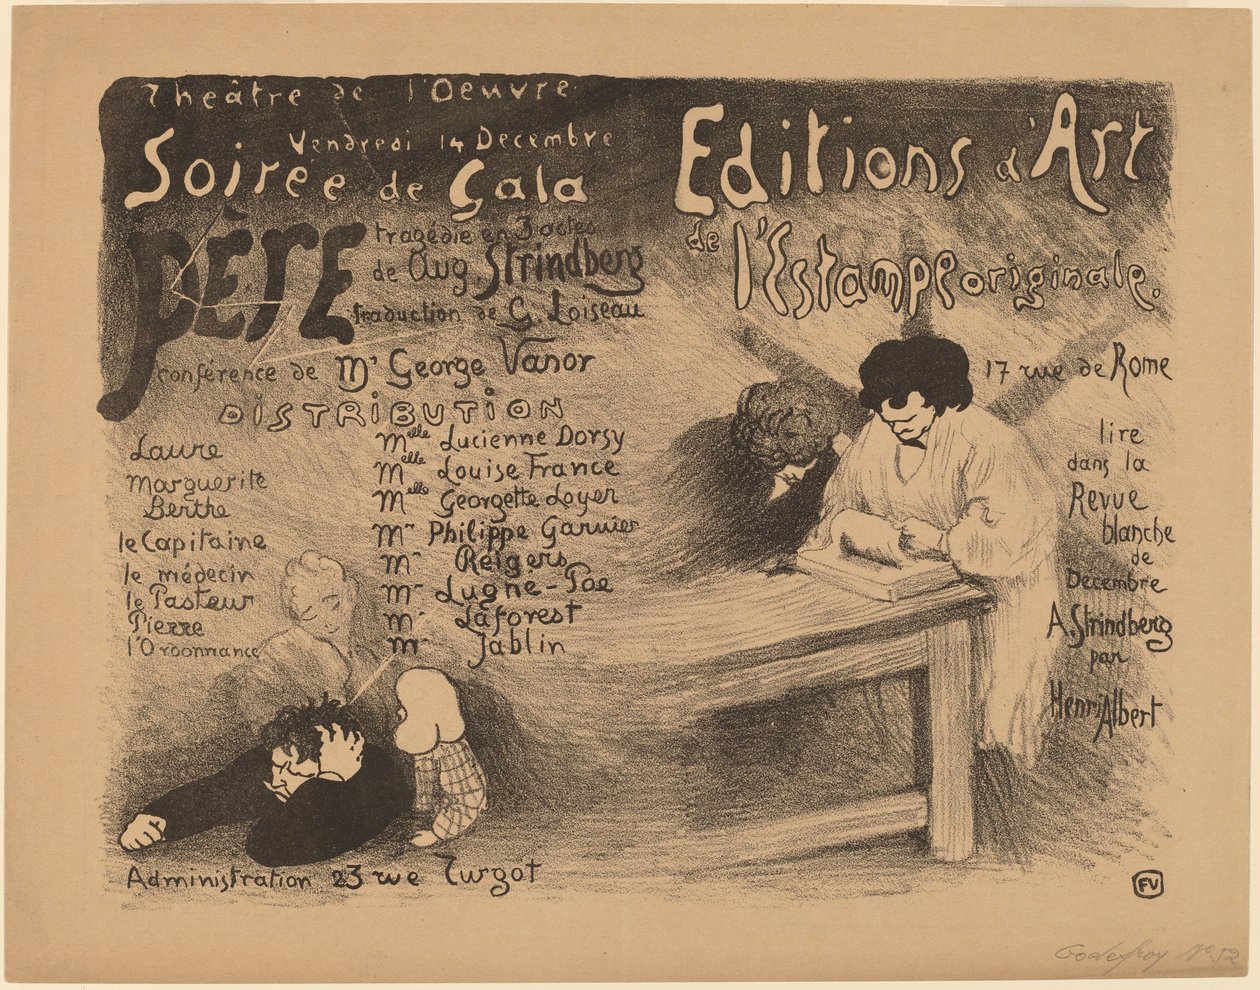 Théâtre de l'Oeuvre
Vendredi 14 Decembre
Soirée de Gala
PÈRE
tragédie en 3 actes
de Aug. Strindberg
traduction de G. Loiseau
conférence de Mr George Vanor
DISTRIBUTION
Laure Melle Lucienne Dorsy
Marguerite Melle Louise France
Berthe Melle Georgette Loyer
le Capitaine Mr Philippe Garnier
le médecin Mr Reigers
le Pasteur Mr Lugne-Poe
Pierre Mr Laforest
l'Ordonnance Mr Jablin
Administration 23 rue Turgot
Editions d'Art
de l'Estampe originale.
17 rue de Rome
lire
dans la
Revue
blanche
de
Décembre
A. Strindberg
par
Henri Albert
FV
Godefroy No 52